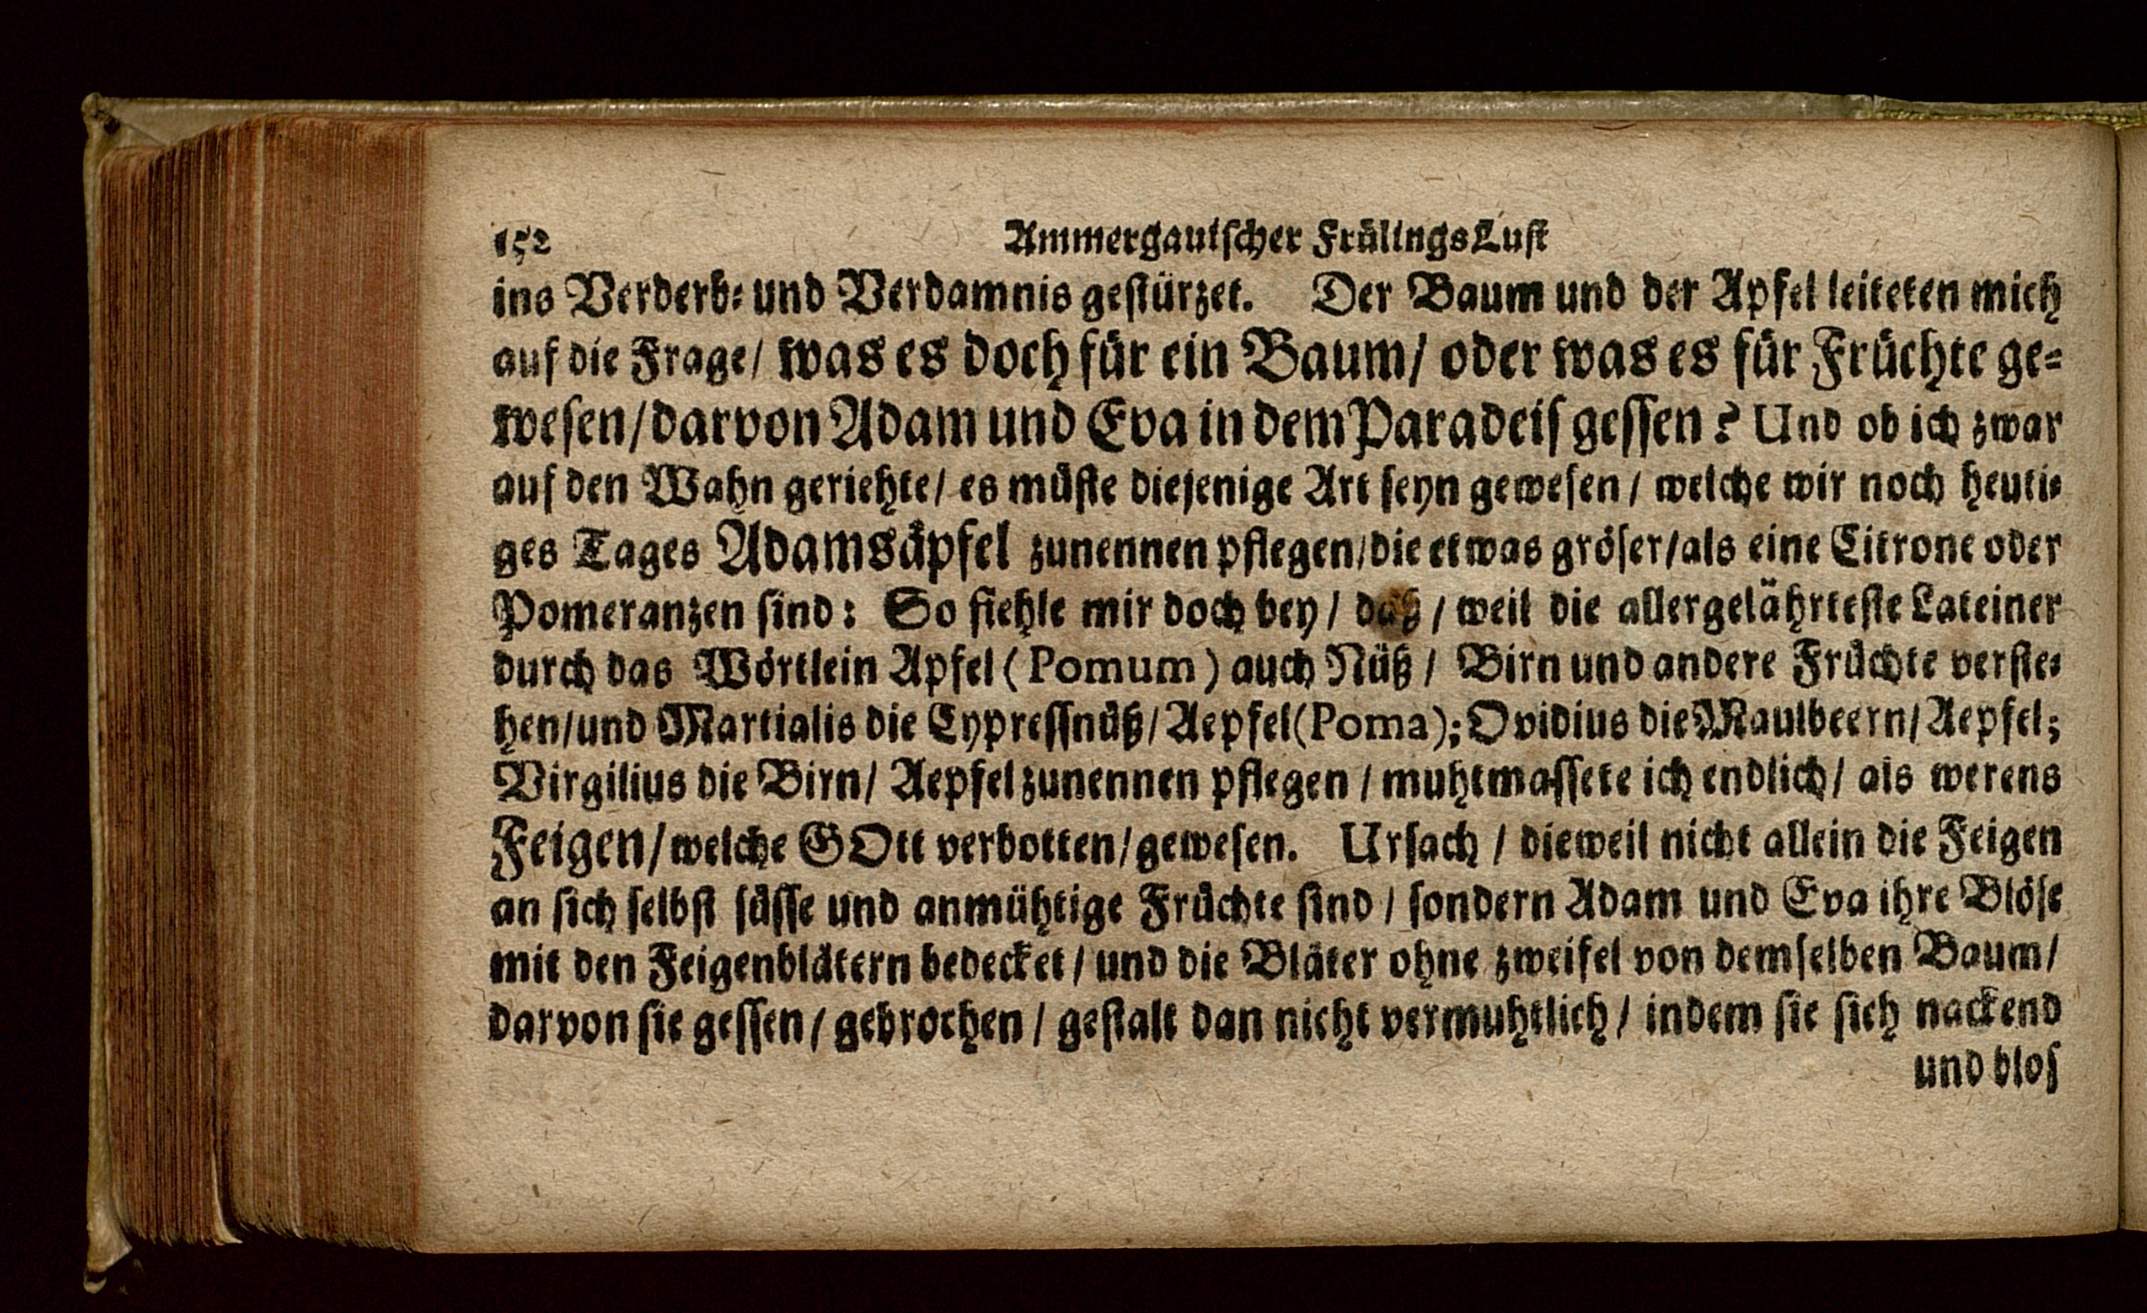 152 Ammergauiſcher FrülingsLuſt
ins Verderb- und Verdamnis geſtürzet. Der Baum und der Apfel leiteten mich
auf die Frage/ was es doch für ein Baum/ oder was es für Früchte ge-
weſen/darvon Adam und Eva in dem Paradeiſ geſſen? Und ob ich zwar
auf den Wahn geriehte/ es müſte diejenige Art ſeyn geweſen/ welche wir noch heuti-
ges Tages Adamsäpfel zunennen pflegen/die etwas gröſer/als eine Citrone oder
Pomeranzen ſind: So fiehle mir doch bey/ daß/ weil die allergelährteſte Lateiner
durch das Wörtlein Apfel (Pomum) auch Nüß/ Birn und andere Früchte verſte-
hen/und Martialis die Cypreſſnüß/Aepfel(Poma); Ovidius die Maulbeern/Aepfel;
Virgilius die Birn/ Aepfel zunennen pflegen/ muhtmaſſete ich endlich/ als werens
Feigen/welche GOtt verbotten/geweſen. Urſach/ dieweil nicht allein die Feigen
an ſich ſelbſt ſüſſe und anmühtige Früchte ſind/ ſondern Adam und Eva ihre Blöſe
mit den Feigenblätern bedecket/ und die Bläter ohne zweifel von demſelben Baum/
darvon ſie geſſen/ gebrochen/ geſtalt dan nicht vermuhtlich/ indem ſie ſich nackend
und bloſ